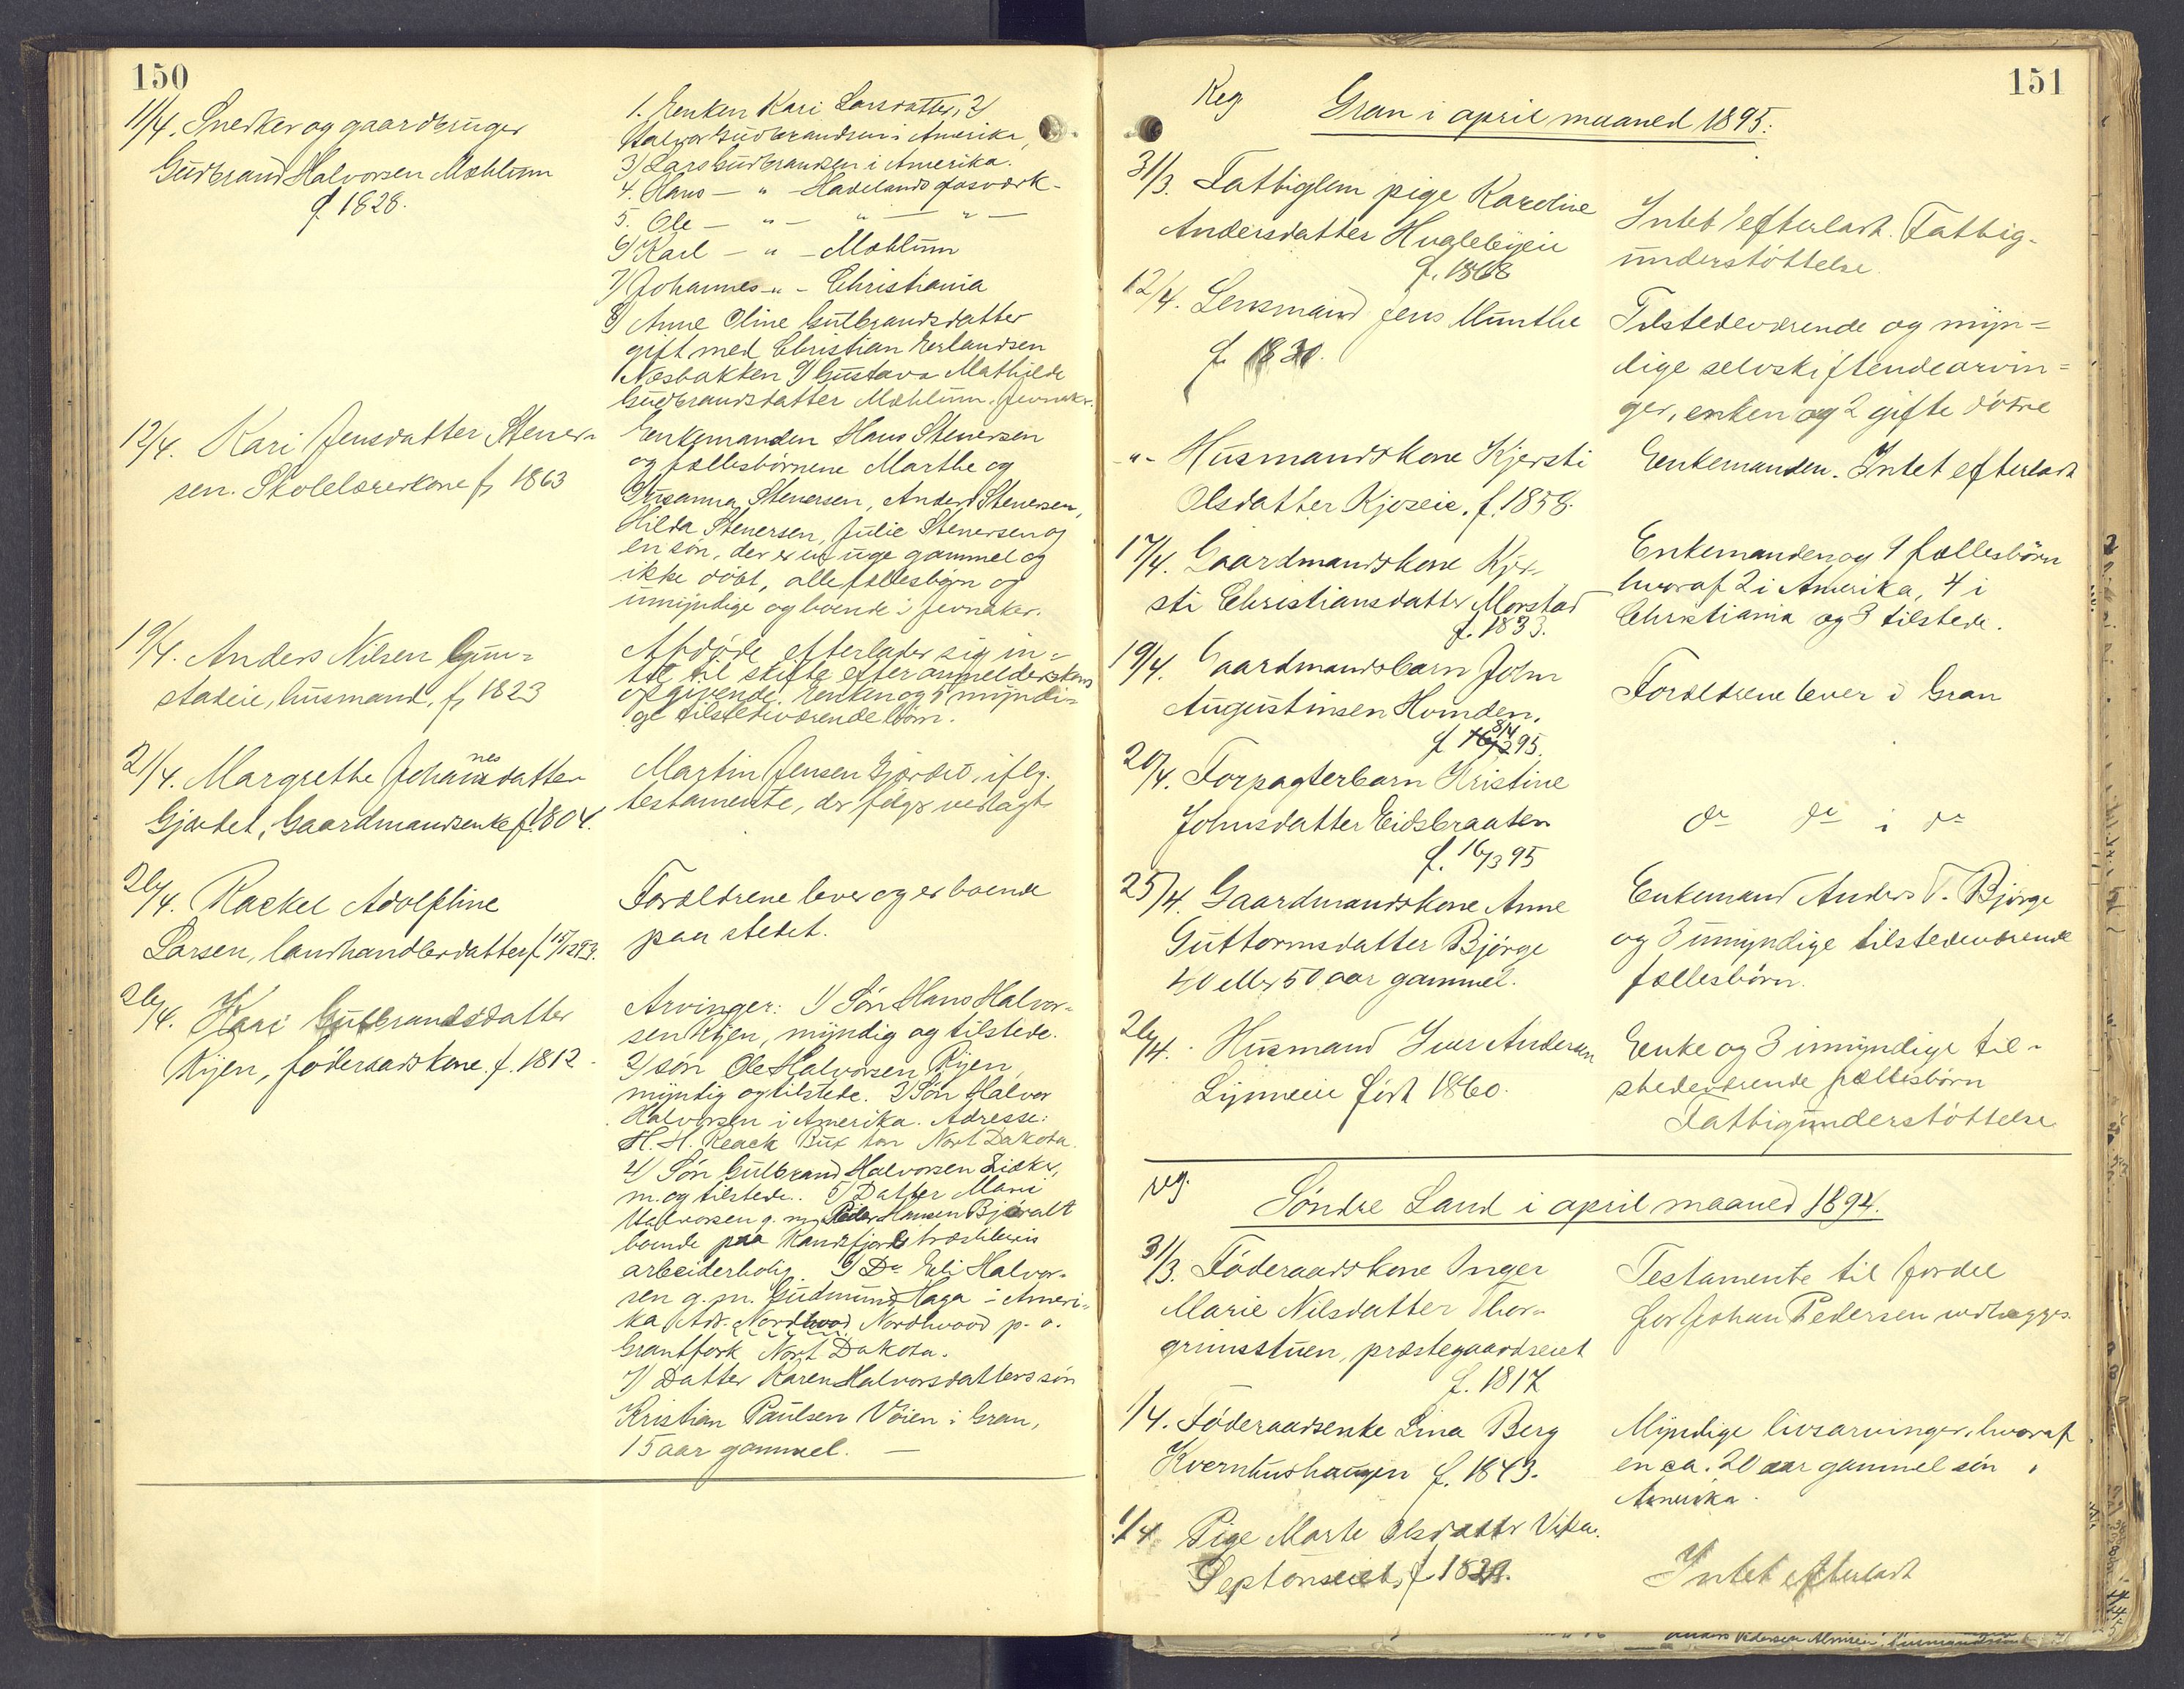 150
11/4. Snedker og gaardbruger
Gudbrand Halvorsen Mæhlum
f. 1828.
1. Enken Kari Larsdatter, 2)
Halvor Gudbrandsen i Amerika,
3) Lars Gudbrandsen i Amerika.
4. Hans — " — Hadelands glasværk.
5. Ole — " — " — " —
6) Karl — " — Mæhlum
7) Johannes — " — Christiania
8) Anne Oline Gulbrandsdatter
gift med Christian Erlandsen
Næsbakken 9) Gustava Mathilde
Gudbrandsdatter Mæhlum. Jevnaker.
12/4. Kari Jensdatter Stener-
sen. Skolelærerkone f. 1863
Enkemanden Hans Stenersen
og fællesbörnene Marthe og
Susanna Stenersen, Anders Stenersen,
Hilda Stenersen, Julie Stenersen og
en sön, der er en uge gammel og
ikke döbt, alle fællesbörn og
umyndige og boende i Jevnaker.
19/4. Anders Nilsen Gun=
stadeie, husmand, f. 1823
Afdöde efterlader sig in=
tet til skifte efter anmelderskens
opgivende. Enken og 5 myndi=
ge tilstedeværende börn.
21/4. Margrethe Johannesdatter
Gjærdet, Gaardmandsenke f. 1804.
Martin Jensen Gjærdet, iflg.
testamente, der fölger vedlagt
26/4. Rackel Adolfine
Larsen, landhandlerdatter f. 15/12 93.
Forældrene lever og er boende
paa stedet.
26/4. Kari Gulbrandsdatter
Rijen, föderaadskone. f. 1812.
Arvinger: 1) Sön Hans Halvor-
sen Rijen, myndig og tilstede.
2) sön Ole Halvorsen Rijen,
myndig og tilstede. 3) Sön Halvor
Halvorsen i Amerika. Adresse:
H. H. Reack Buxton Nort Dakota.
4) Sön Gulbrand Halvorsen
m. og tilstede. 5) Datter Marie
Halvorsen g. m. Peder Hansen
boende paa Randsfjords træsliberis
arbeiderbolig 6) Do Eli Halvor-
sen g. m. Gudmund Haga i Ameri-
ka Adr. Nordwood Nordhwood p. o.
Grantfork Nort Dakota.
7) Datter Karen Halvorsdatters sön
Kristian Paulsen Vöien i Gran,
15 aar gammel. —
151
Reg
Gran i april maaned 1895.
31/3. Fattiglem pige Karoline
Andersdatter Hvaleby eie
f. 1868
Intet efterladt. Fattig-
understöttelse.
12/4. Lensmand Jens Munthe
f. 1830.
Tilstedeværende og myn=
dige selvskiftende arvin=
ger, enken og 2 gifte dötre
- " - Husmandskone Kjersti
Olsdatter Kjoseie. f. 1858.
Enkemanden. Intet efterladt
17/4. Gaardmandskone Kjer-
sti Christiansdatter Morstad
f. 1833.
Enkemanden og 9 fællesbörn
hvoraf 2 i Amerika, 4 i
Christiania og 3 tilstede.
19/4. Gaardmandsbarn John
Augustinsen Homden.
f. 8/4 95.
Forældrene lever i Gran
20/4. Forpagterbarn Kristine
Johnsdatter Eidsbraaten
f. 16/3 95
do do i do
25/4. Gaardmandskone Anne
Guttormsdatter Björge
40 eller 50 aar gammel.
Enkemand Anders T. Björge
og 3 umyndige tilstedeværende
fællesbörn.
26/4. Husmand Iver Andersen
Lynneeie födt 1860.
Enke og 3 umyndige til-
stedeværende fællesbörn
Fattigunderstöttelse
reg.
Söndre Land i april maaned 1894.
31/3. Föderaadskone Inger
Marie Nilsdatter Thor-
grimsstuen, præstegaardseiet
f. 1817
Testamente til fordel
for Johan Pedersen vedlægges.
1/4. Föderaadsenke Lina Berg
Kvernhushaugen f. 1843.
Myndige livsarvinger, hvoraf
en ca. 20 aar gammel sön i
Amerika.
1/4 Pige Marte Olsdatter
f. 1829.
Intet efterladt